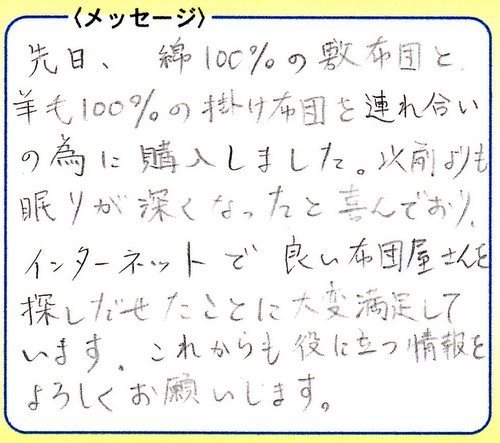 〈メッセージ〉
先日、綿100%の敷布団と
羊毛100%の掛け布団を連れ合い
の為に購入しました。以前よりも
眠りが深くなったと喜んでおり、
インターネットで良い布団屋さんを
探しだせたことに大変満足して
います。これからも役に立つ情報を
よろしくお願いします。